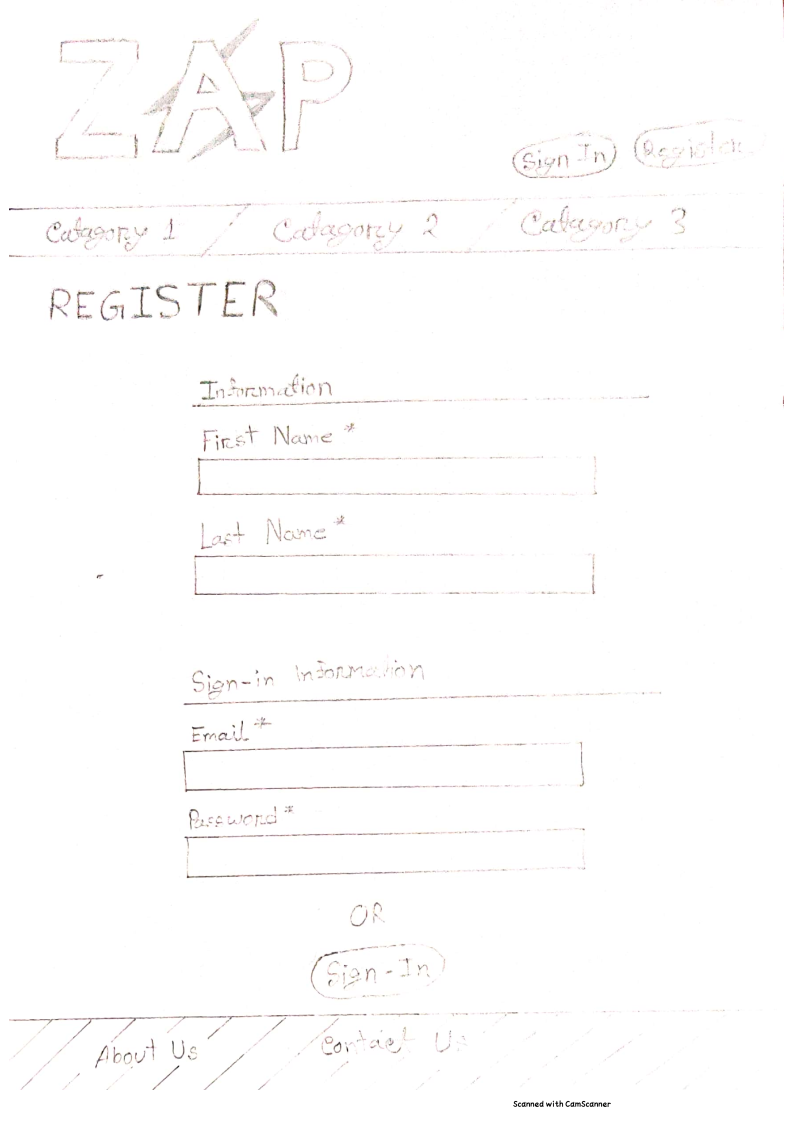 ZAP
Sign In Register
Catagory 1 / Catagory 2 / Catagory 3
REGISTER
Information
First Name *
Last Name *
Sign-in Information
Email *
Password *
OR
Sign-In
About Us Contact Us
Scanned with CamScanner